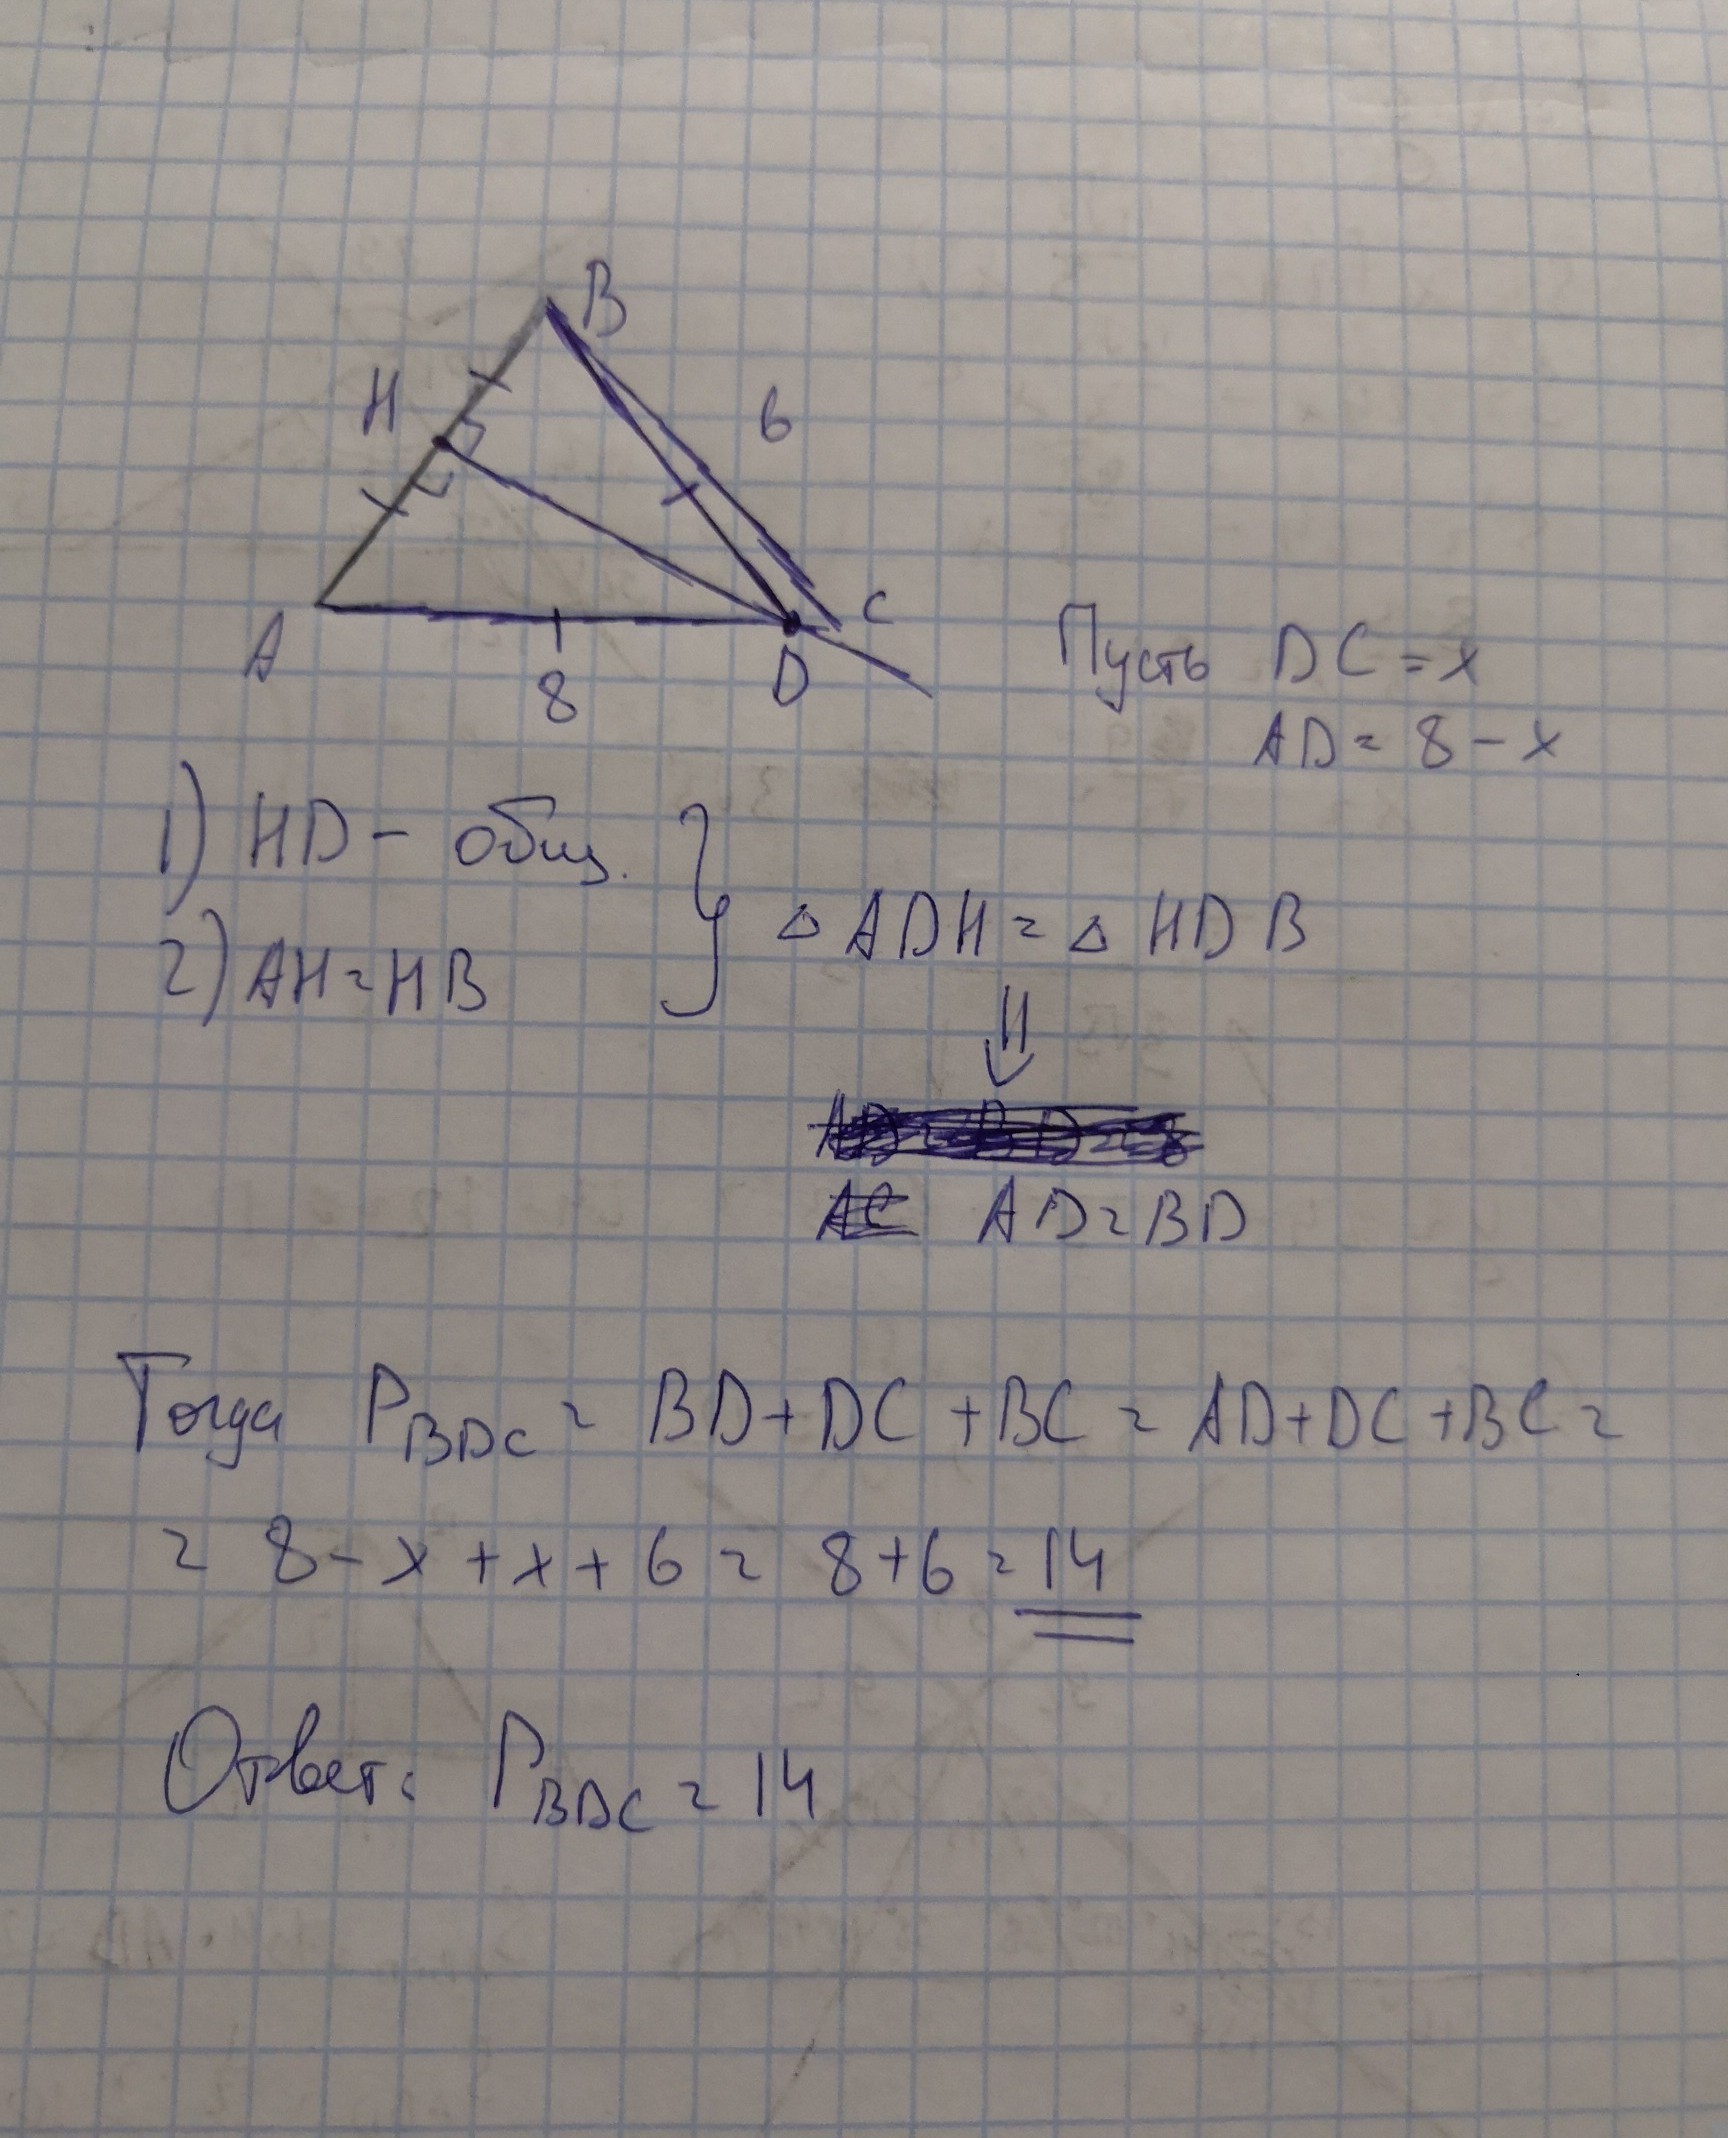 B
H
6
C
A
D
8
Пусть DC = x
AD = 8 - x
1) HD - общ.
2) AH = HB
△ ADH = △ HDB
⇓
AD = BD
Тогда P BDC = BD + DC + BC = AD + DC + BC =
= 8 - x + x + 6 = 8 + 6 = 14
Ответ: P BDC = 14